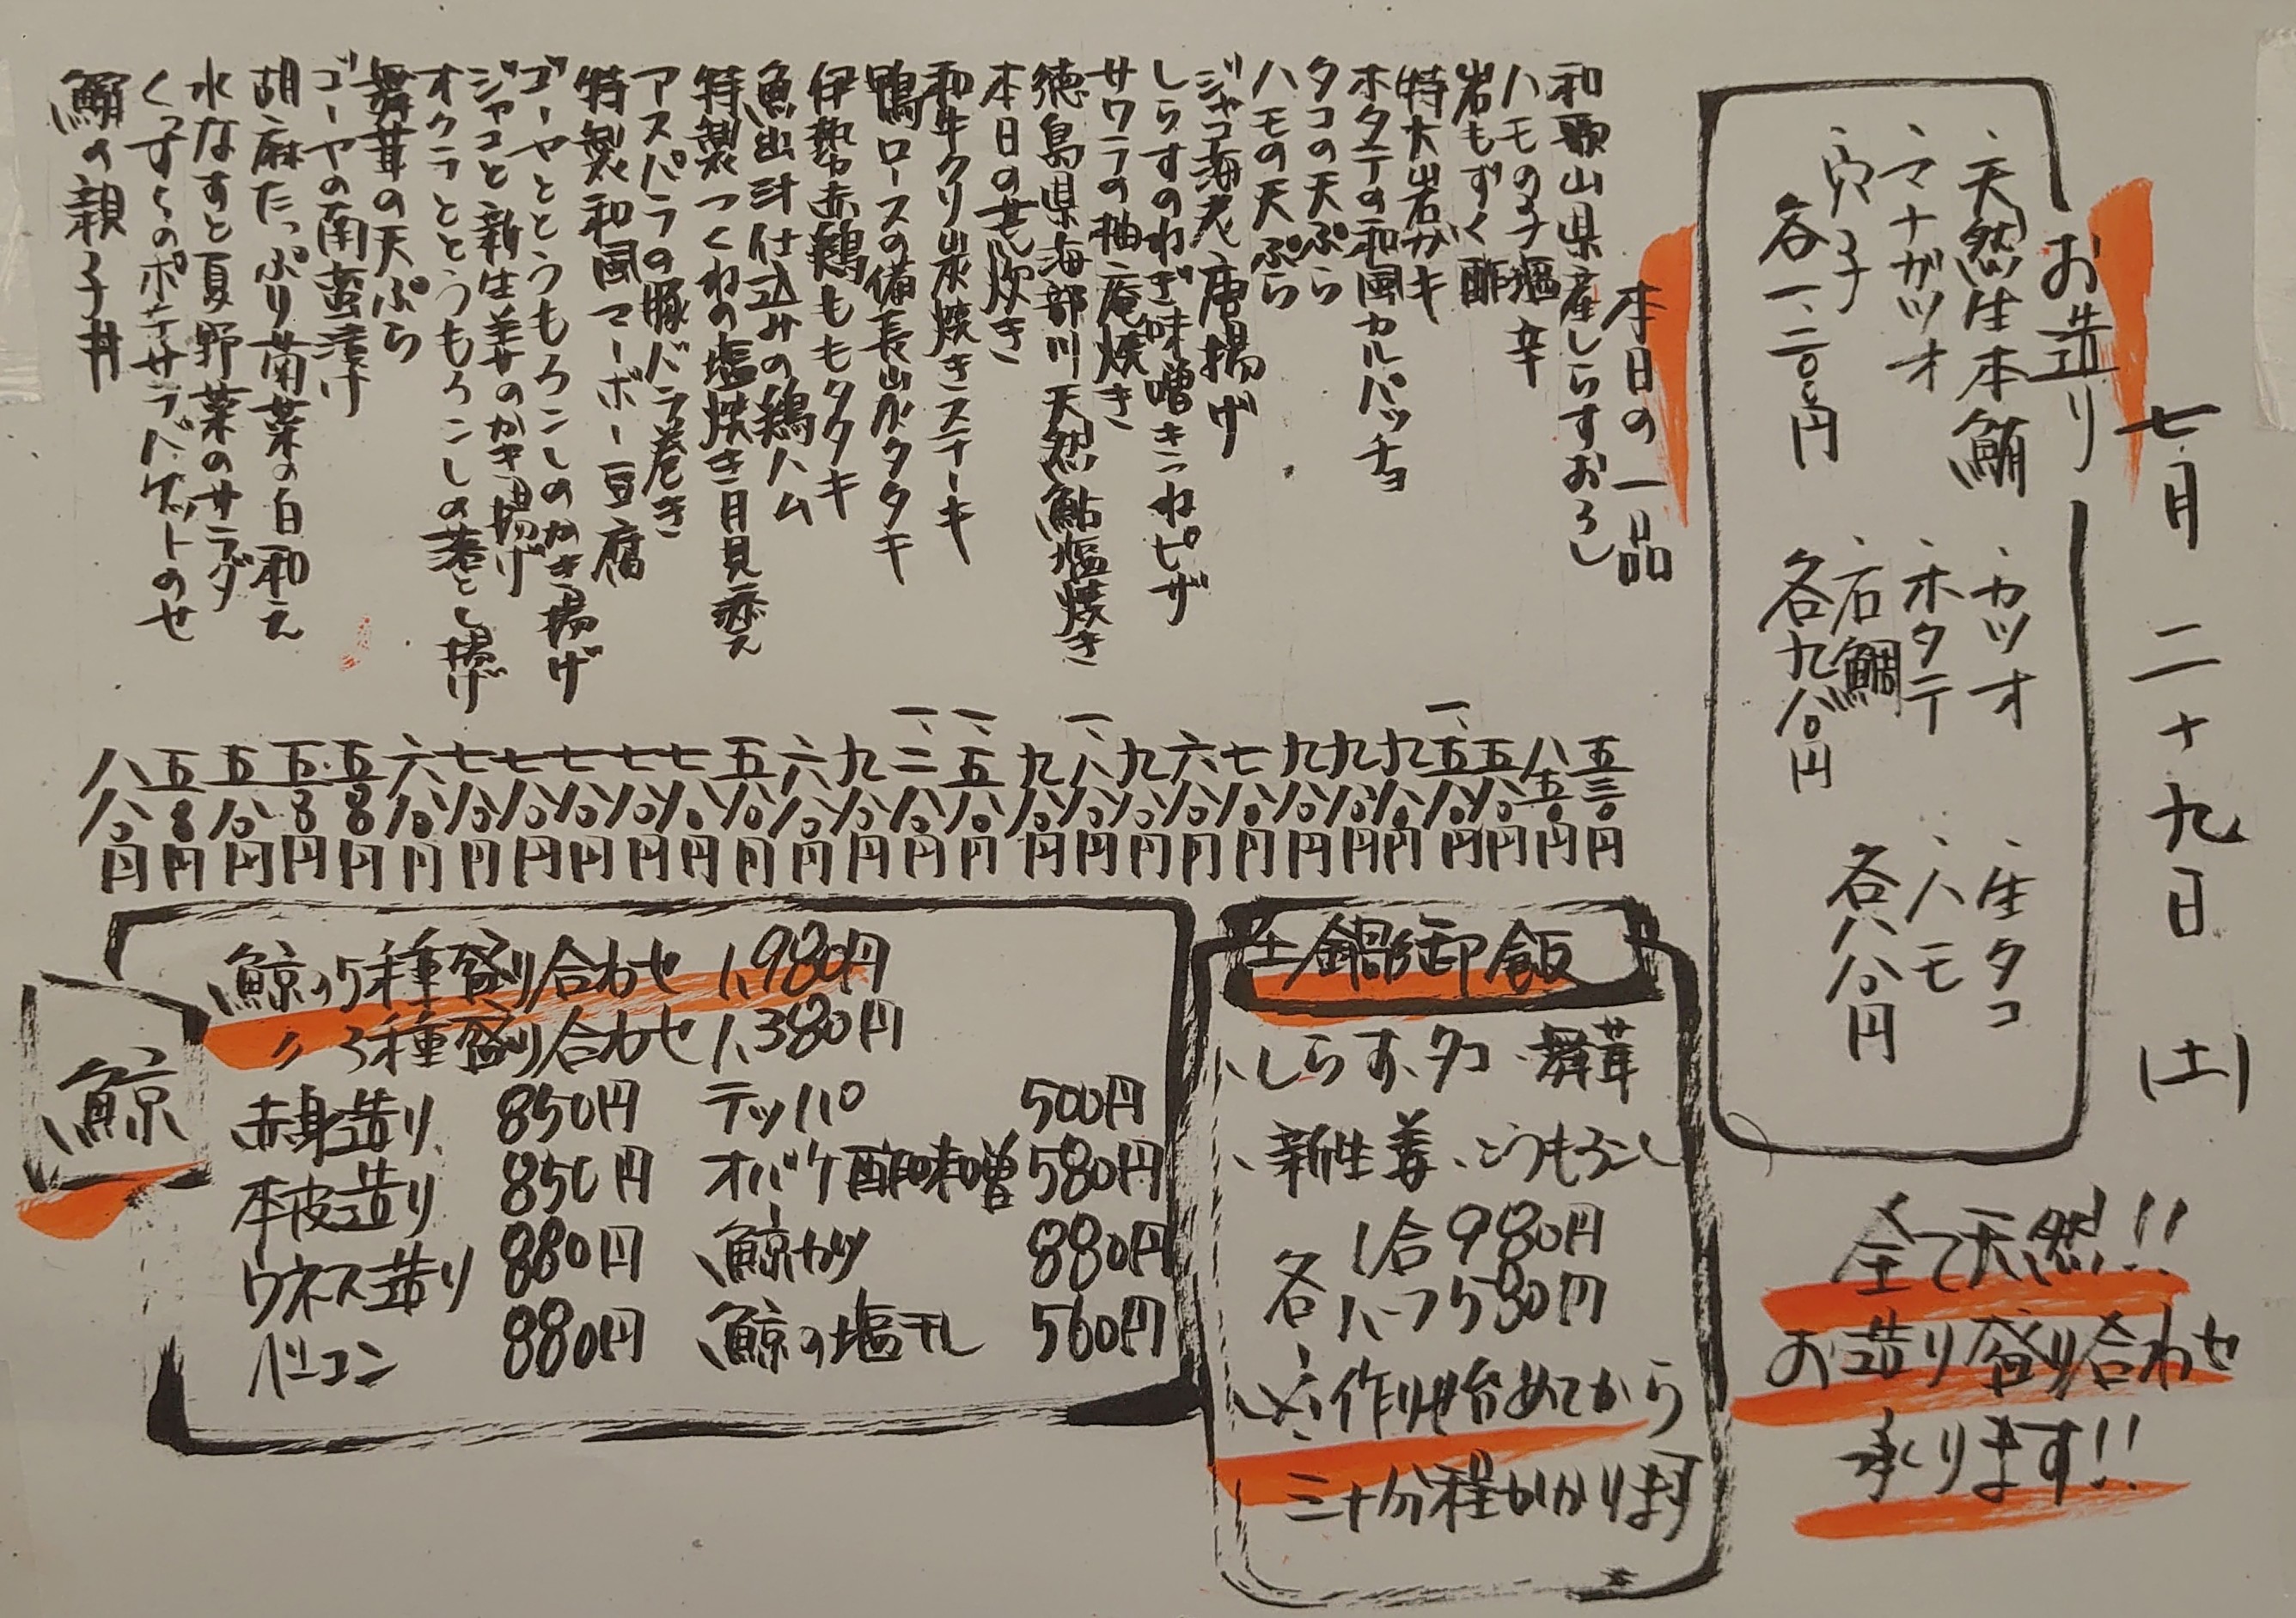 七月二十九日(土)
お造り
、天然生本鮪
、マナガツオ
、穴子
各一、二〇〇円
、カツオ
、ホタテ
、石鯛
各九八〇円
、生タコ
、ハモ
各八八〇円
全て天然!!
お造り盛り合わせ
承ります!!
本日の一品
和歌山県産しらすおろし 五三〇円
ハモの子塩辛 八五〇円
岩もずく酢 五八〇円
特大岩ガキ 一、五八〇円
ホタテの和風カルパッチョ 九八〇円
タコの天ぷら 九八〇円
ハモの天ぷら 九八〇円
ジャコ海老唐揚げ 七八〇円
しらすのねぎ味噌きつねピザ 六八〇円
サワラの柚庵焼き 九八〇円
徳島県海部川天然鮎塩焼き 一、八八〇円
本日の荒炊き 九八〇円
和牛クリ炭焼きステーキ 一、五八〇円
鴨ロースの備長山瓜タタキ 一、二八〇円
伊勢赤鶏ももタタキ 九八〇円
魚出汁仕込みの鶏ハム 六八〇円
特製つくねの塩焼き月見添え 五八〇円
アスパラの豚バラ巻き 七八〇円
特製和風マーボー豆腐 七八〇円
ゴーヤととうもろこしのかき揚げ 七八〇円
ジャコと新生姜のかき揚げ 七八〇円
オクラととうもろこしの落とし揚げ 七八〇円
舞茸の天ぷら 六八〇円
ゴーヤの南蛮漬け 五〇〇円
胡麻たっぷり菊菜の白和え 五〇〇円
水なすと夏野菜のサラダ 五八〇円
くっすくのポテサラバゲットのせ 五〇〇円
鮪の親子丼 八八〇円
土鍋御飯
、しらす、タコ、舞茸
、新生姜、とうもろこし
各 1合980円
ハーフ580円
※作り始めてから
三十分程かかります
鯨
鯨の5種盛り合わせ 1,980円
〃 3種盛り合わせ 1,380円
赤身造り 850円 テッパ 500円
本皮造り 850円 オバケ酢味噌 580円
ウネス造り 880円 鯨カツ 880円
ベーコン 880円 鯨の塩干し 560円